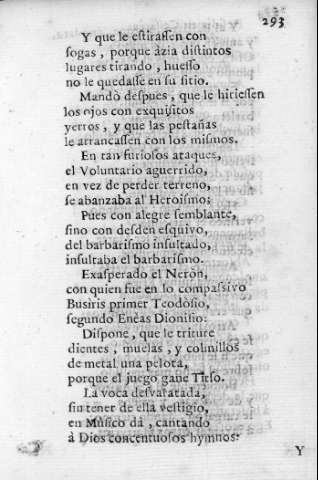 293
Y que le estirassen con
sogas, porque àzia distintos
lugares tirando, huesso
no le quedasse en su sitio.
Mandò despues, que le hiriessen
los ojos con exquisitos
yerros, y que las pestañas
le arrancassen con los mismos.
En tan furiosos ataques,
el Voluntario aguerrido,
en vez de perder terreno,
se abanzaba al Heroismo;
Pues con alegre semblante,
sino con desden esquivo,
del barbarismo insultado,
insultaba el barbarismo.
Exasperado el Neròn,
con quien fue en lo compassivo
Busiris primer Teodòsio,
segundo Enèas Dionisio:
Dispone, que le triture
dientes, muelas, y colmillos
de metal una pelota,
porque el juego gane Tirso.
La voca desvaratada,
sin tener de ella vestigio,
en Musico dà, cantando
à Dios concentuosos hymnos:
Y